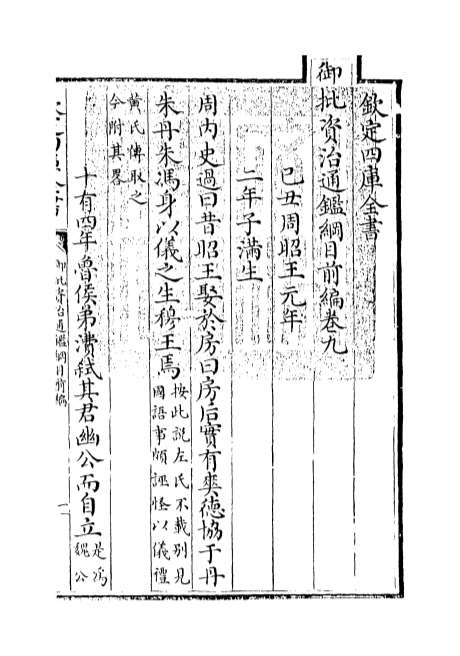 欽定四庫全書
御批資治通鑑綱目前編卷九
己丑周昭王元年
二年子滿生
周内史過曰昔昭王娶於房曰房后實有爽德協于丹
朱丹朱馮身以儀之生穆王焉
按此說左氏不載别見
國語事頗誣怪以儀禮
黄氏傳取之
今附其畧
十有四年魯侯弟潰弑其君幽公而自立
是為
魏公
御批資治通鑑綱目前編
一